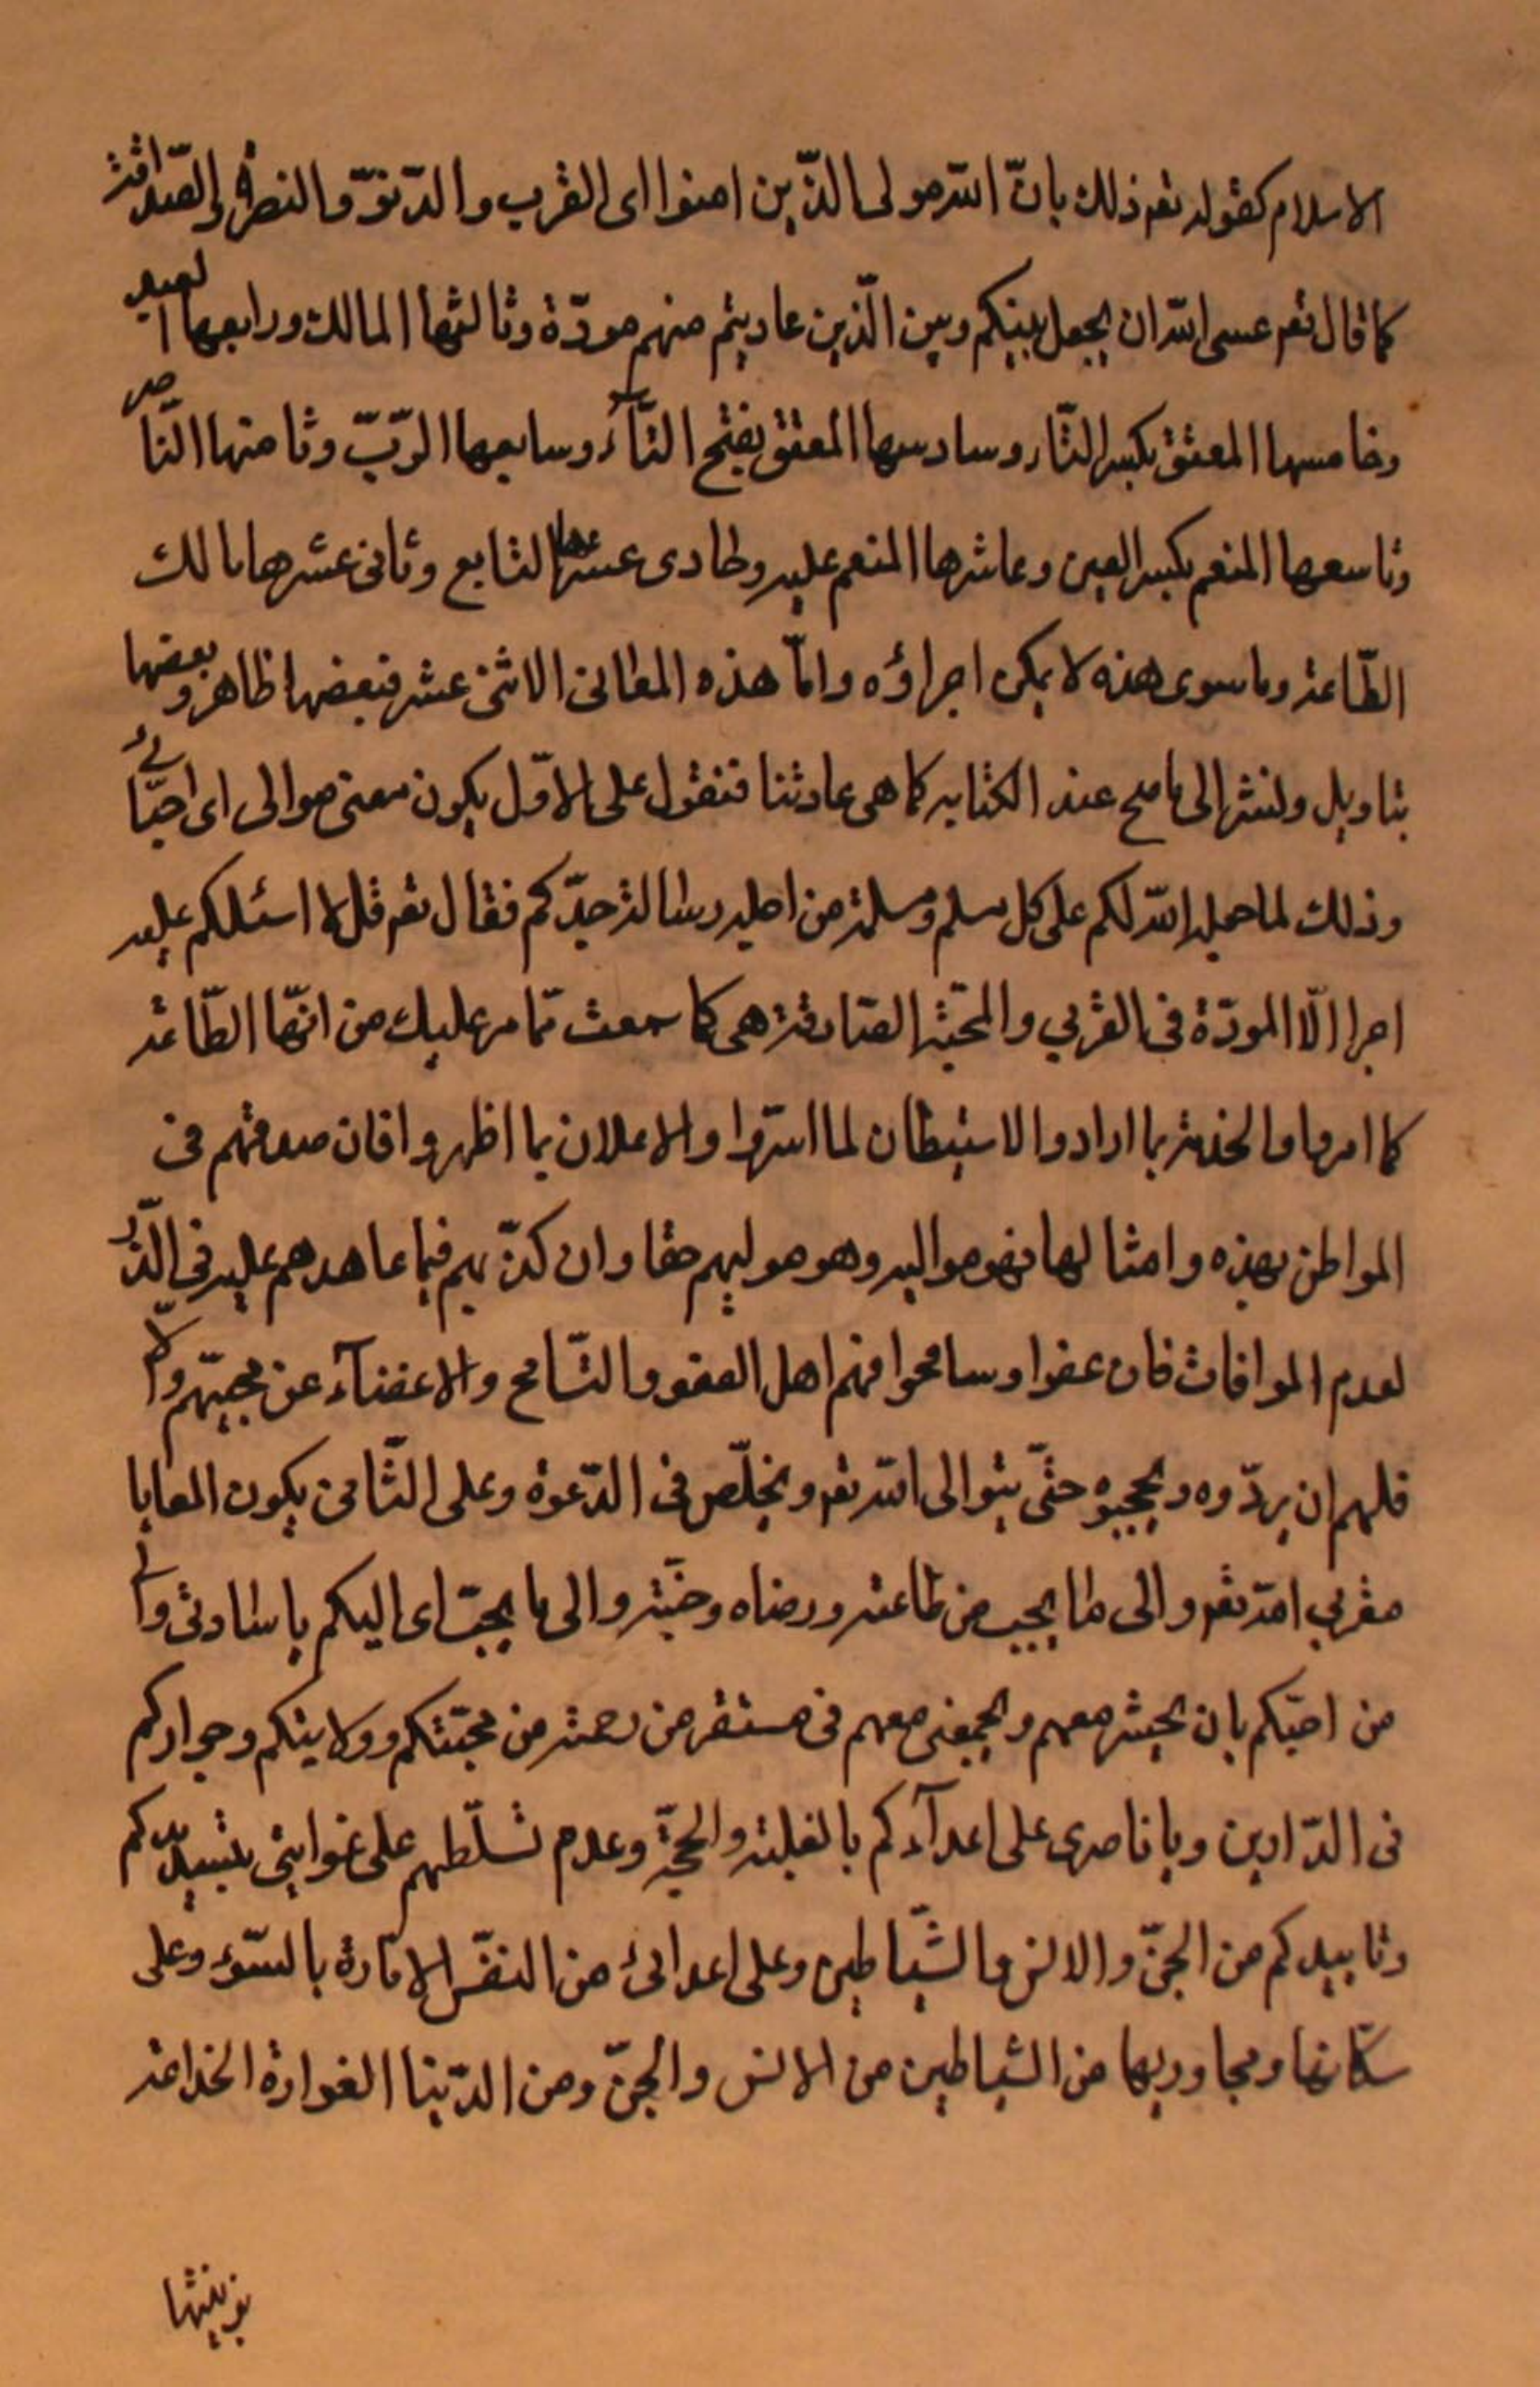 الاسلام كقوله تعم ذلك بانّ الله مولى الذّين امنوا اى القرب والدّنوّ والنصرة والصّداقة
كما قال تعم عسى الله ان يجعل بينكم وبين الّذين عاديتم منهم مودّة وثالثها المالك ورابعها العبد
وخامسها المعتق بكسر التّاء وسادسها المعتق بفتح التّاء وسابعها الرّبّ وثامنها النّاصر
وتاسعها المنعم بكسر العين وعاشرها المنعم عليه وحادى عشرها التابع وثانى عشرها مالك
الطّاعة وما سوى هذه لا يمكن اجراؤه وامّا هذه المعانى الاثنى عشر فبعضها ظاهر وبعضها
بتاويل ولنشر الى ما صح عند الكتابه كما هى عادتنا فنقول على الاوّل يكون معنى موالى اى احبّائى
وذلك لما جعل الله لكم على كل مسلم ومسلمة من اجل رسالة جدّكم فقال تعم قل لا اسئلكم عليه
اجرا الّا المودّة فى القربى والمحبّة الصّادقة هى كما سمعت ممّا مر عليك من انّها الطّاعة
كما امروا والخدمة بما ارادوا الاستبطان لما اسرّوا والاعلان بما اظهروا فان صدقهم فى
المواطن بهذه وامثالها فهو مواليه وهو موليهم حقا وان كذّبهم فيما عاهدهم عليه فى الذّر
لعدم الموافات فان عفوا وسامحوا فهم اهل العفو والتّسامح والاغضآء عن محبّهم والّا
فلهم ان يردّوه ويحجبوه حتّى يتوالى الله تعم ويخلّص فى الدّعوة وعلى الثّامن يكون المعنى يا
مقربى الله تعم والى ما يجب من طاعته ورضاه وجنّته والى ما يحبّ اى اليكم يا ساداتى والى
من احبّكم بان يحبشر معهم ويجمعنى معهم فى مستقر من رحمته من محبّتكم وولايتكم وجواركم
فى الدّارين ويا ناصرى على اعدآءكم بالغلبة والحجّة وعدم تسلّطهم على غوايتى بتسديدكم
وتاييدكم من الجنّ والانس والشّياطين وعلى اعدائى من النفس الامّارة بالسّوء وعلى
سكّانها ومجاوريها من الشياطين من الانس والجنّ ومن الدّنيا الغرارة الخداعة
بزينتها